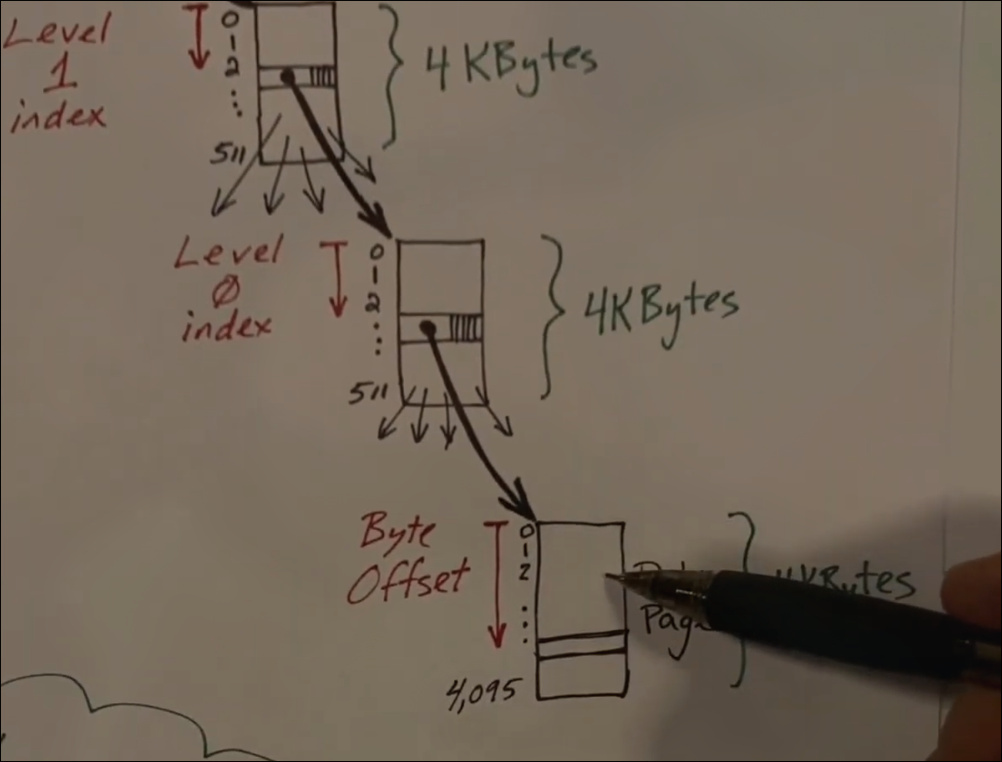 Level
1
index
0
1
2
511
4 KBytes
Level
0
index
0
1
2
511
4KBytes
Byte
Offset
0
1
2
4,095
KBytes